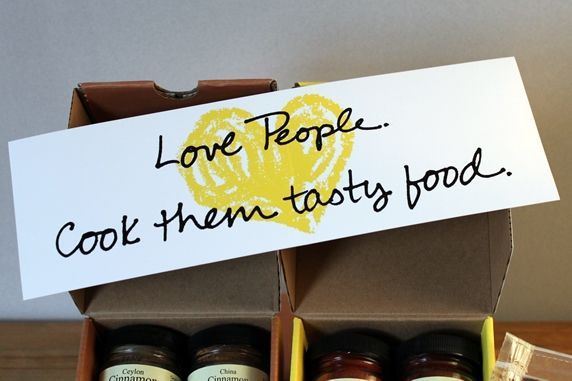 Love People.
Cook them tasty food.
Ceylon
Cinnamon
China
Cinnamon